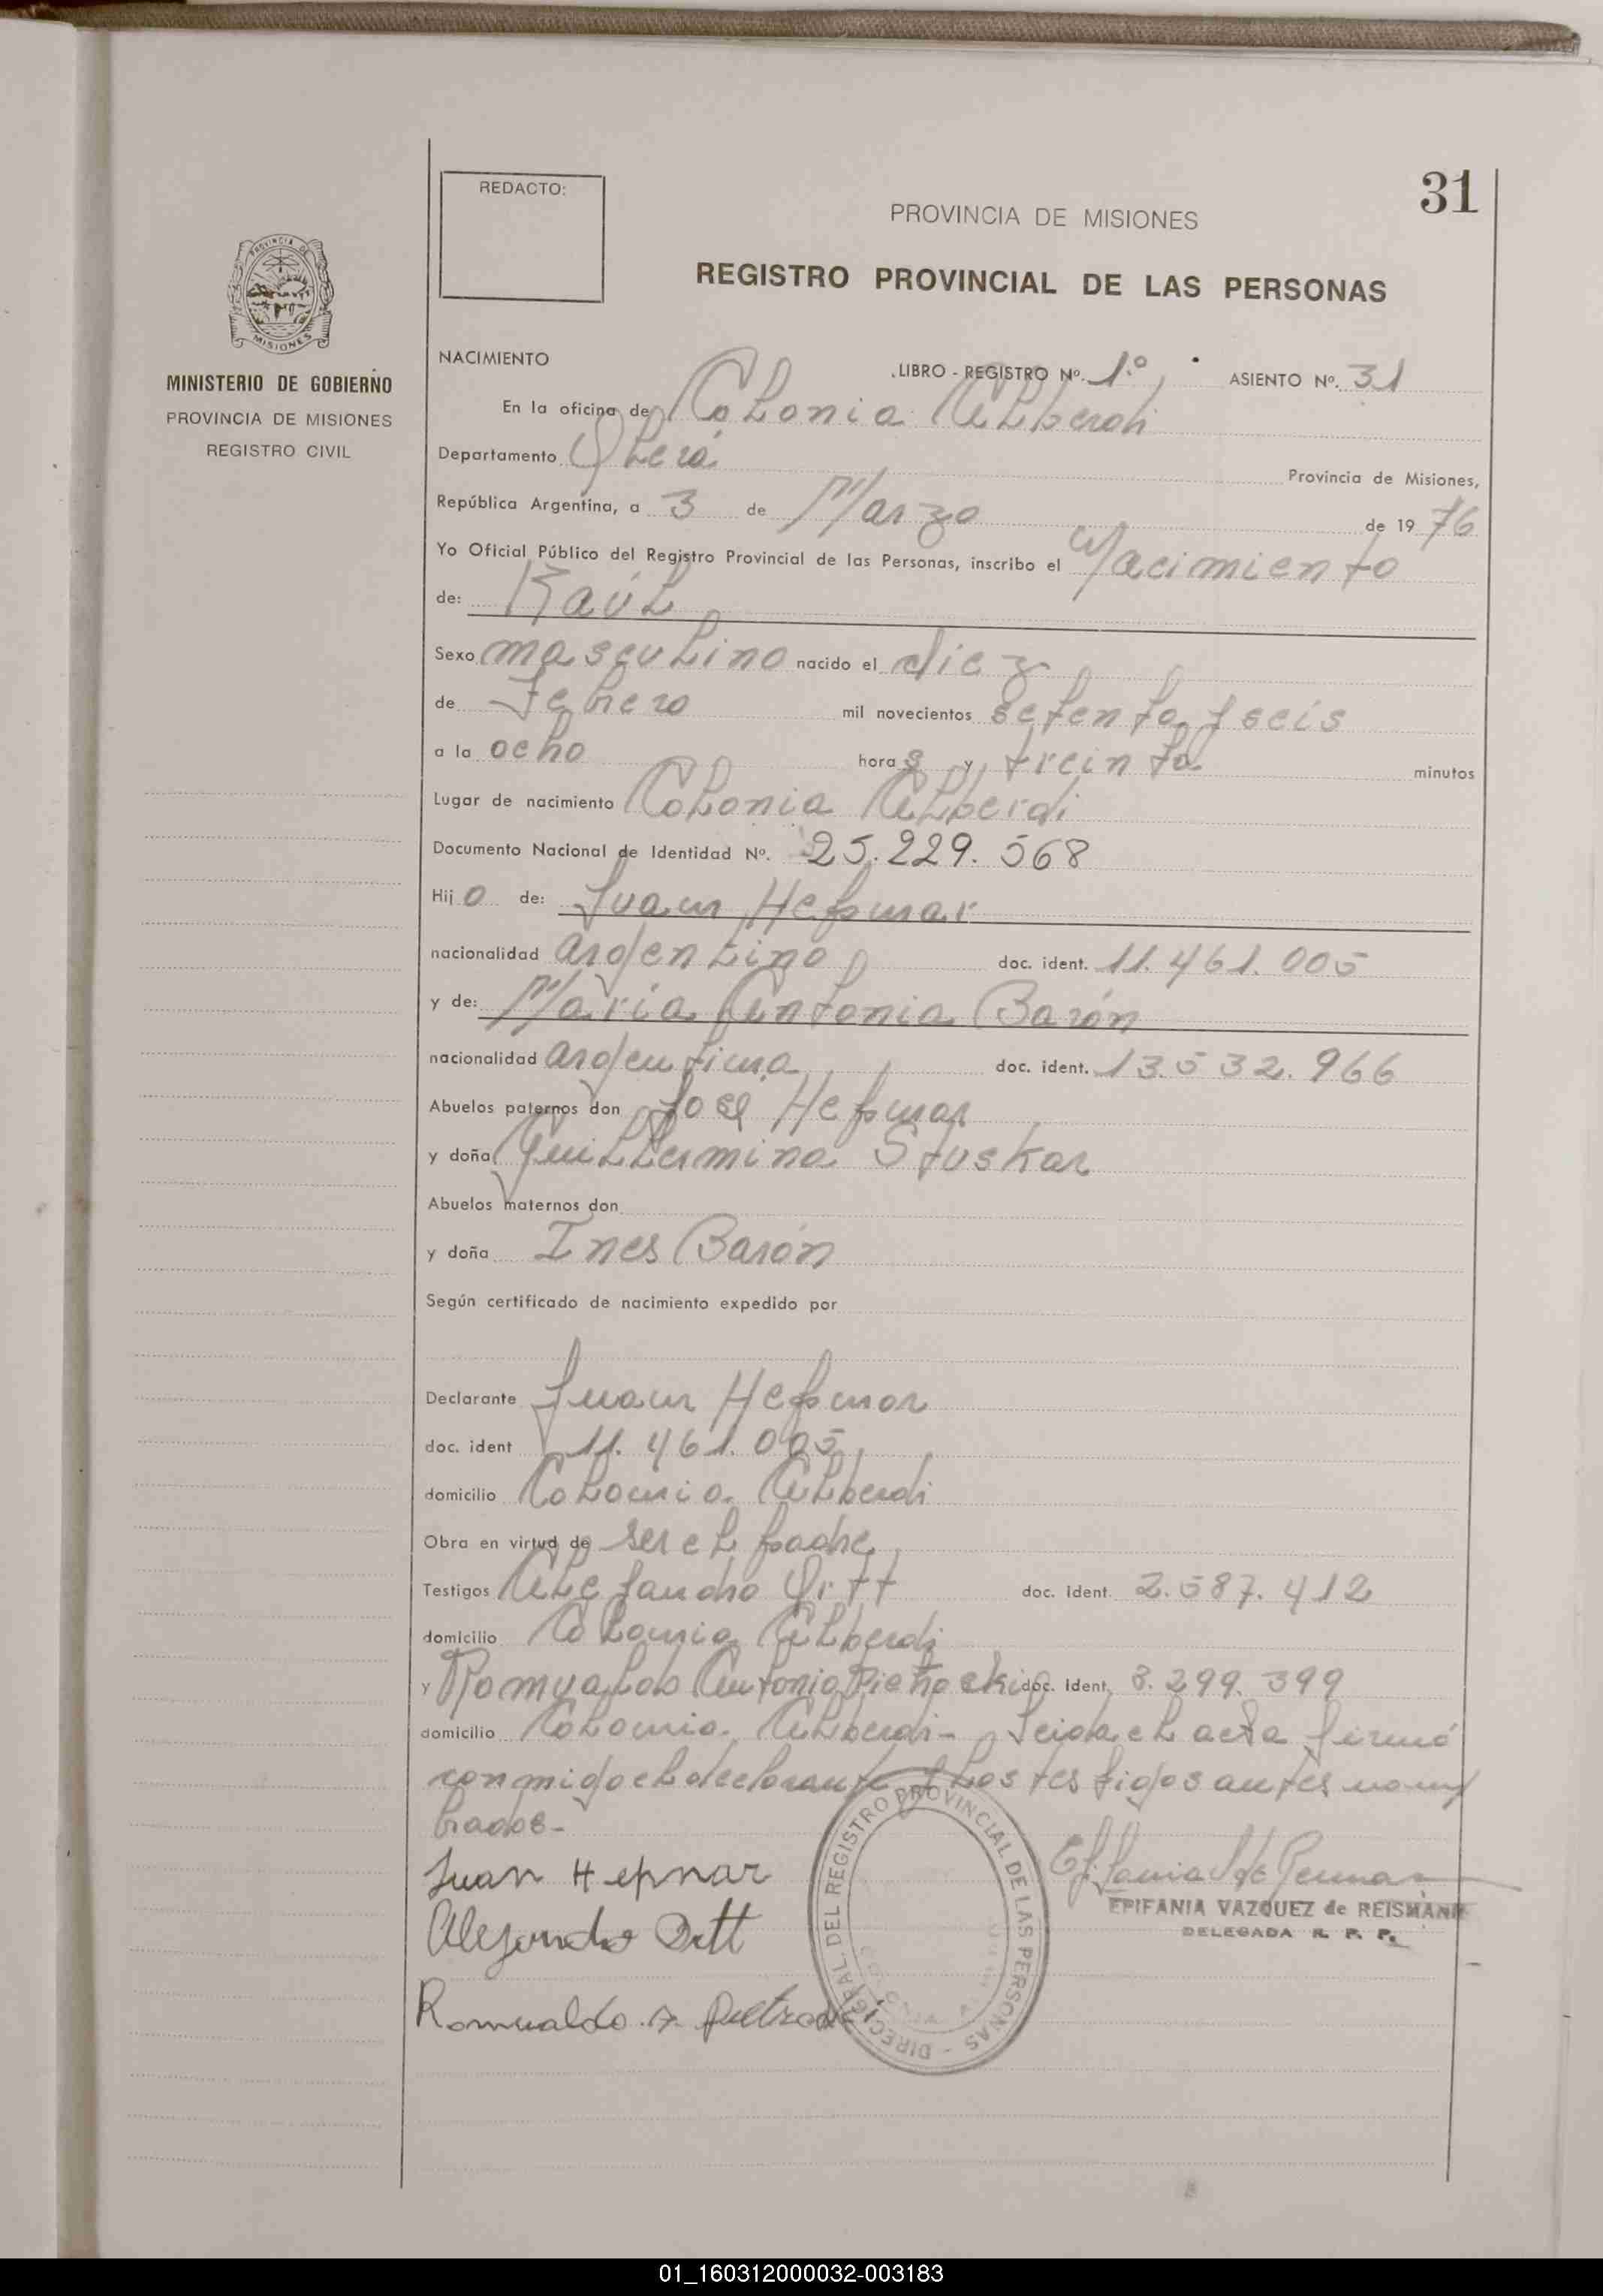 31
REDACTO:
PROVINCIA DE MISIONES
REGISTRO PROVINCIAL DE LAS PERSONAS
PROVINCIA DE
MISIONES
MINISTERIO DE GOBIERNO
PROVINCIA DE MISIONES
REGISTRO CIVIL
NACIMIENTO LIBRO - REGISTRO Nº. 1º, ASIENTO Nº. 31
En la oficina de Colonia Alberdi
Departamento Oberá Provincia de Misiones,
República Argentina, a 3 de Marzo de 19 76
Yo Oficial Público del Registro Provincial de las Personas, inscribo el Nacimiento
de: Raúl
Sexo masculino nacido el diez
de Febrero mil novecientos setenta y seis
a la ocho horas y treinta minutos
Lugar de nacimiento Colonia Alberdi
Documento Nacional de Identidad Nº. 25.229.568
Hijo de: Juan Hepnar
nacionalidad argentino doc. ident. 11.461.005
y de: María Antonia Barón
nacionalidad argentina doc. ident. 13.532.966
Abuelos paternos don José Hepnar
y doña Guillermina Stuskar
Abuelos maternos don
y doña Ines Barón
Según certificado de nacimiento expedido por
Declarante Juan Hepnar
doc. ident 11.461.005
domicilio Colonia Alberdi
Obra en virtud de ser el padre
Testigos Alejandro Ditt doc. ident. 2.587.412
domicilio Colonia Alberdi
y Romualdo Antonio doc. Ident. 8.299.399
domicilio Colonia Alberdi- Leida el acta firmó
conmigo el declarante y los testigos antes nom
brados-
Juan Hepnar
Alejandro Ditt
Romualdo A.
EPIFANIA VAZQUEZ de REISMANN
DELEGADA R. P. P.
DIRECC GRAL DEL REGISTRO PROVINCIAL DE LAS PERSONAS -
01_160312000032-003183